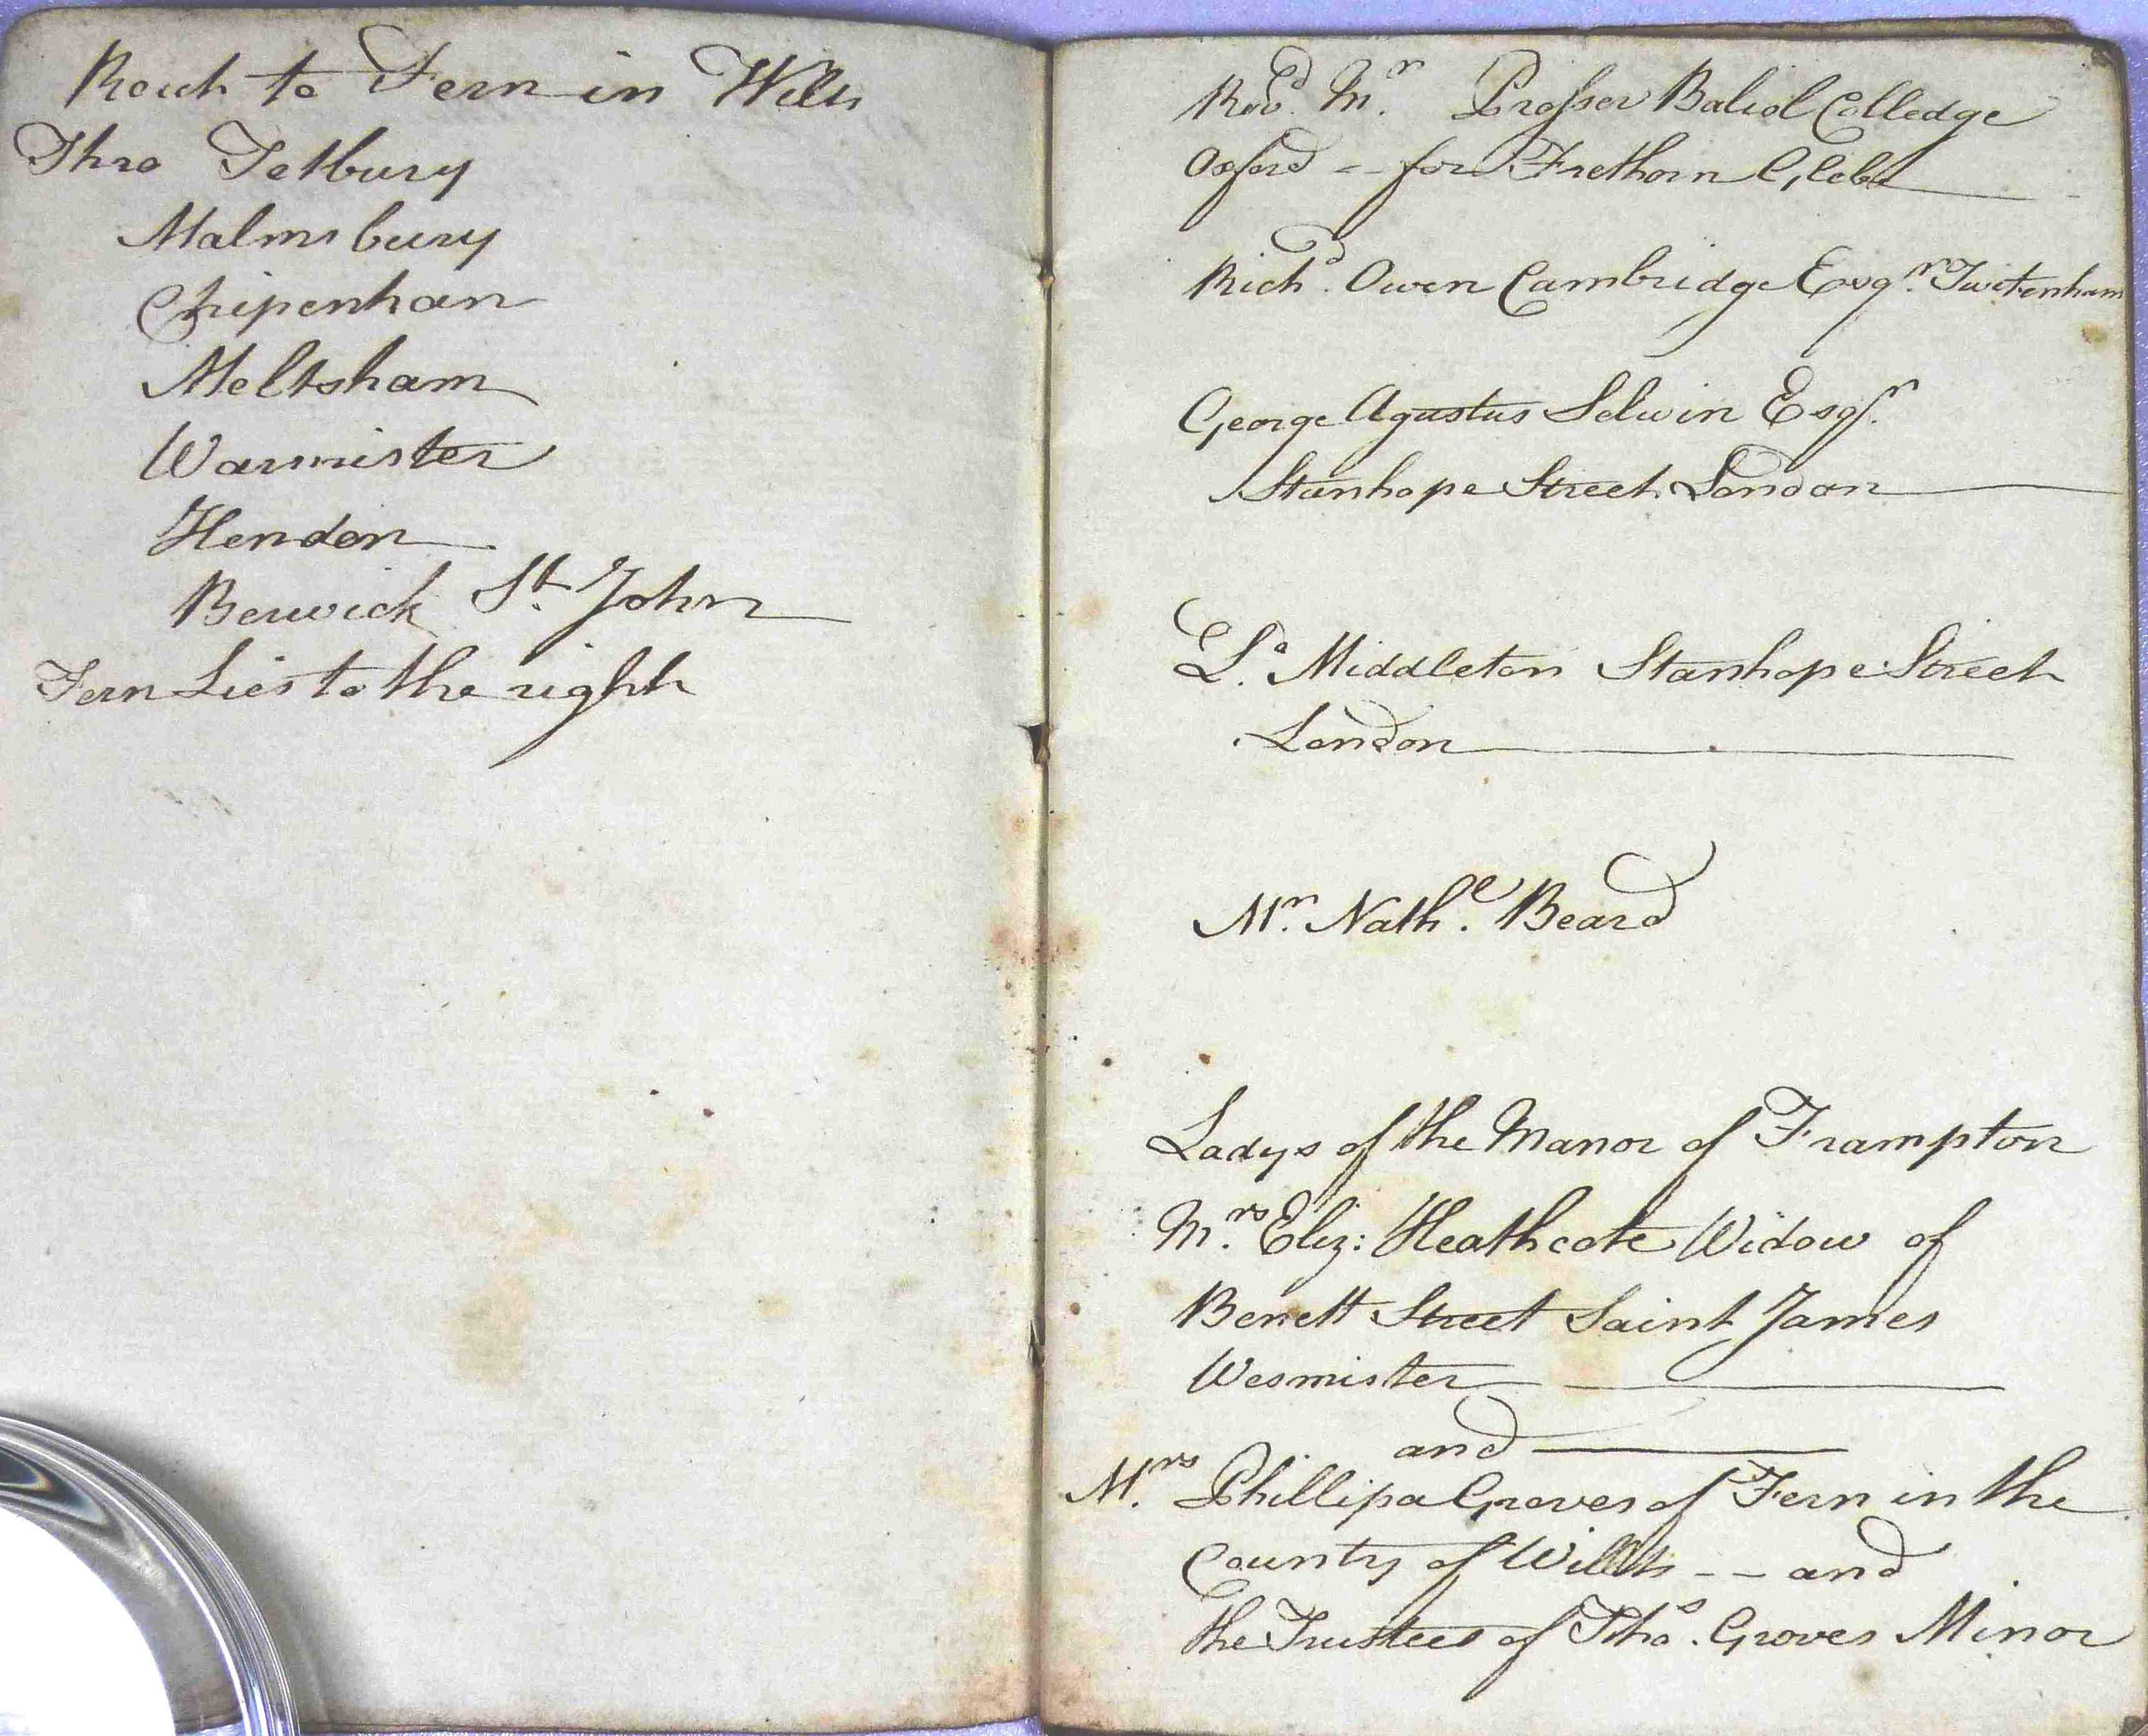 Rout to Fern in Wilts
Thro Tetbury
Malmsbury
Chipenhan
Meltsham
Warmister
Hendon
Berwick St. John
Fern Lies to the right
Revd. Mr. Prosser Baliol Colledge
Oxford - - for Frethorn Glebe
Richd. Owen Cambridge Esqr. Twitenham
George Agustus Selwin Esqr.
Stanhope Street London
Ld. Middleton Stanhope Street
London
Mr. Nathe. Beard
Ladys of the Manor of Frampton
Mrs. Eliz: Heathcote Widow of
Benett Street Saint James
Wesmister
and
Mrs. Phillipa Groves of Fern in the
County of Willts - - and
the Trustees of Thos. Groves Minor